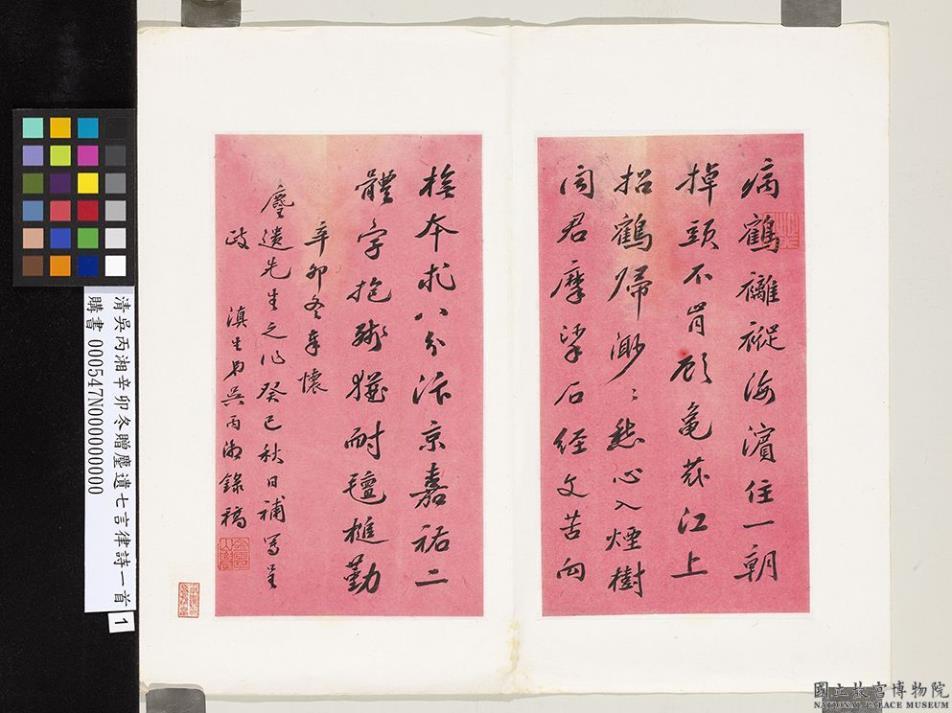 病鶴海濱住一朝
掉頭不肯顧江上
招鶴歸渺〻愁心入煙樹
聞君摩挲石經文苦向
本求八分汴京嘉祐二
體字抱殘猶耐氊椎勤
辛卯冬奉懷
塵遺先生之作癸巳秋日補寫呈
政 滇生弟吳丙湘錄稿
清吳丙湘辛卯冬贈塵遺七言律詩一首 1
購書 000547N000000000
國立故宮博物院
NATIONAL PALACE MUSEUM